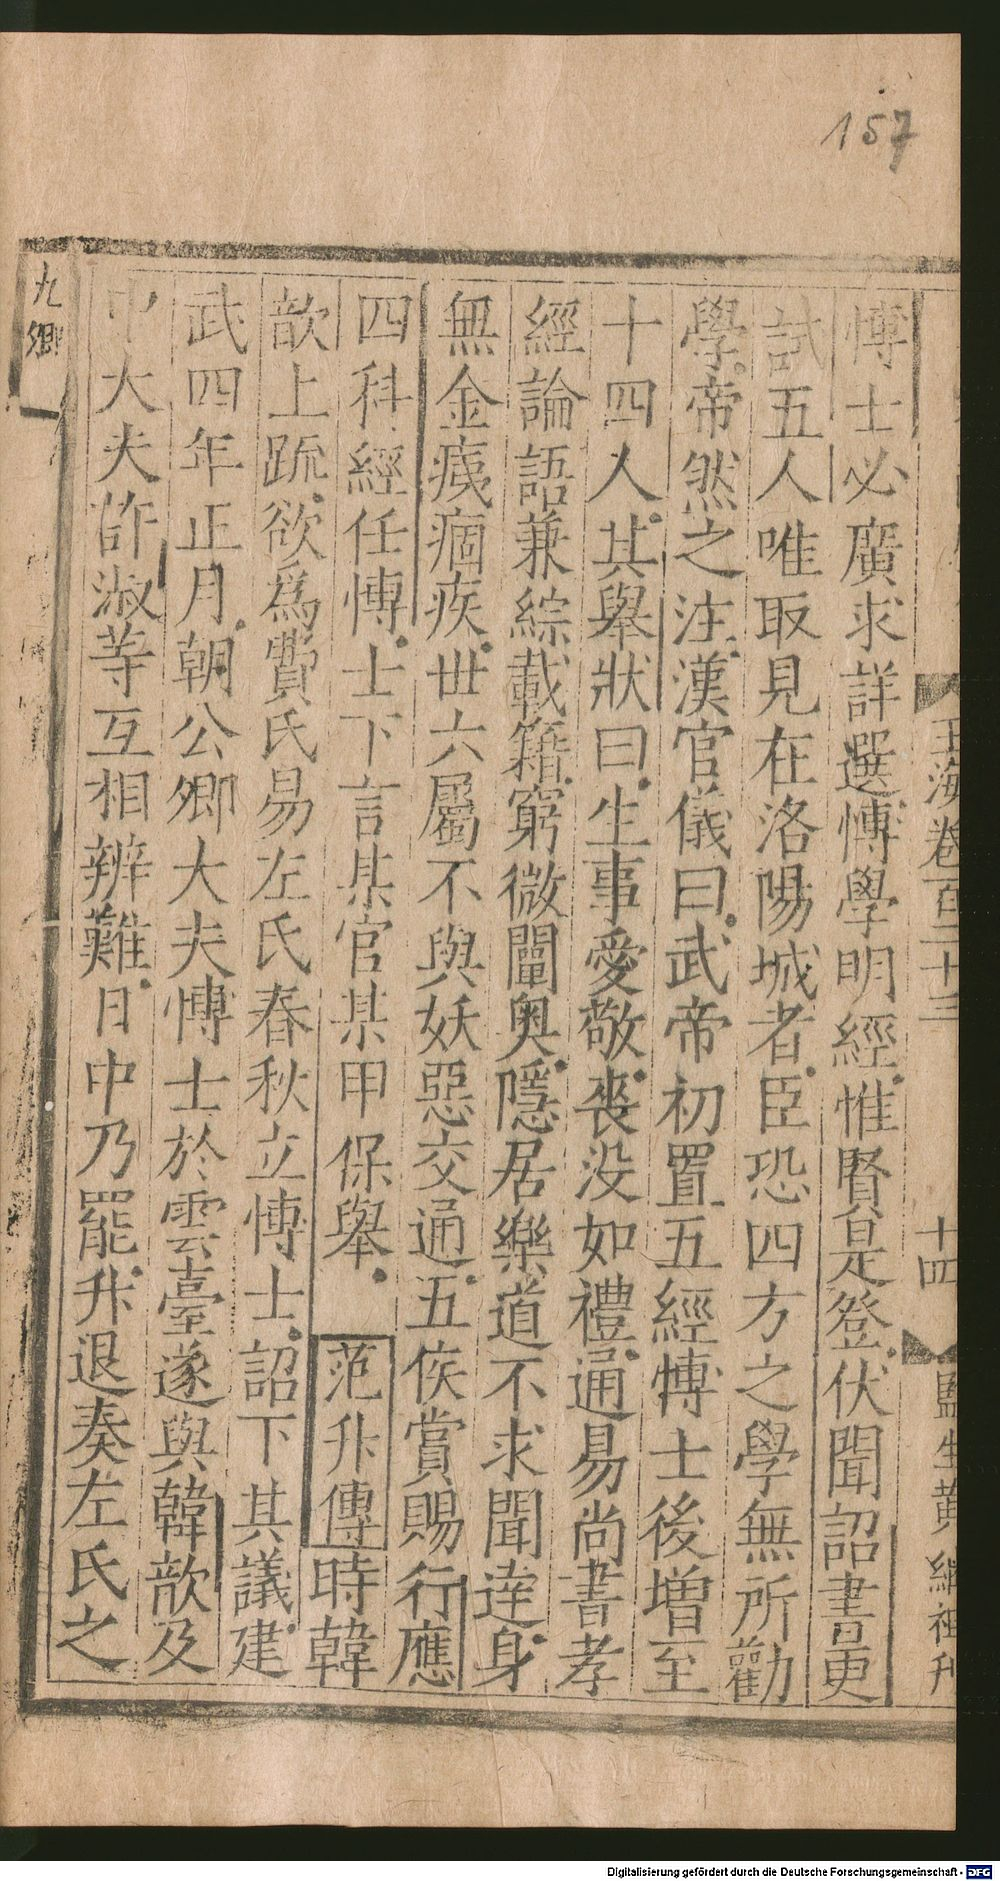 157
玉海卷百二十三
十四
監生黄繼祖刋
博士必廣求詳選博學明經惟賢是登伏聞詔書更
試五人唯取見在洛陽城者臣恐四方之學無所勸
學帝然之注漢官儀曰武帝初置五經博士後增至
十四人其舉狀曰生事愛敬喪没如禮通易尚書孝
經論語兼綜載籍窮微闡奥隱居樂道不求聞逹身
無金痍痼疾世六屬不與妖惡交通五侯賞賜行應
四科經任博士下言某官某甲保舉范升傳時韓
歆上疏欲爲費氏易左氏春秋立博士詔下其議建
武四年正月朝公卿大夫博士於雲臺遂與韓歆及
中大夫許淑等互相辨難日中乃罷升退奏左氏之
九卿
Digitalisierung gefördert durch die Deutsche Forschungsgemeinschaft - DFG